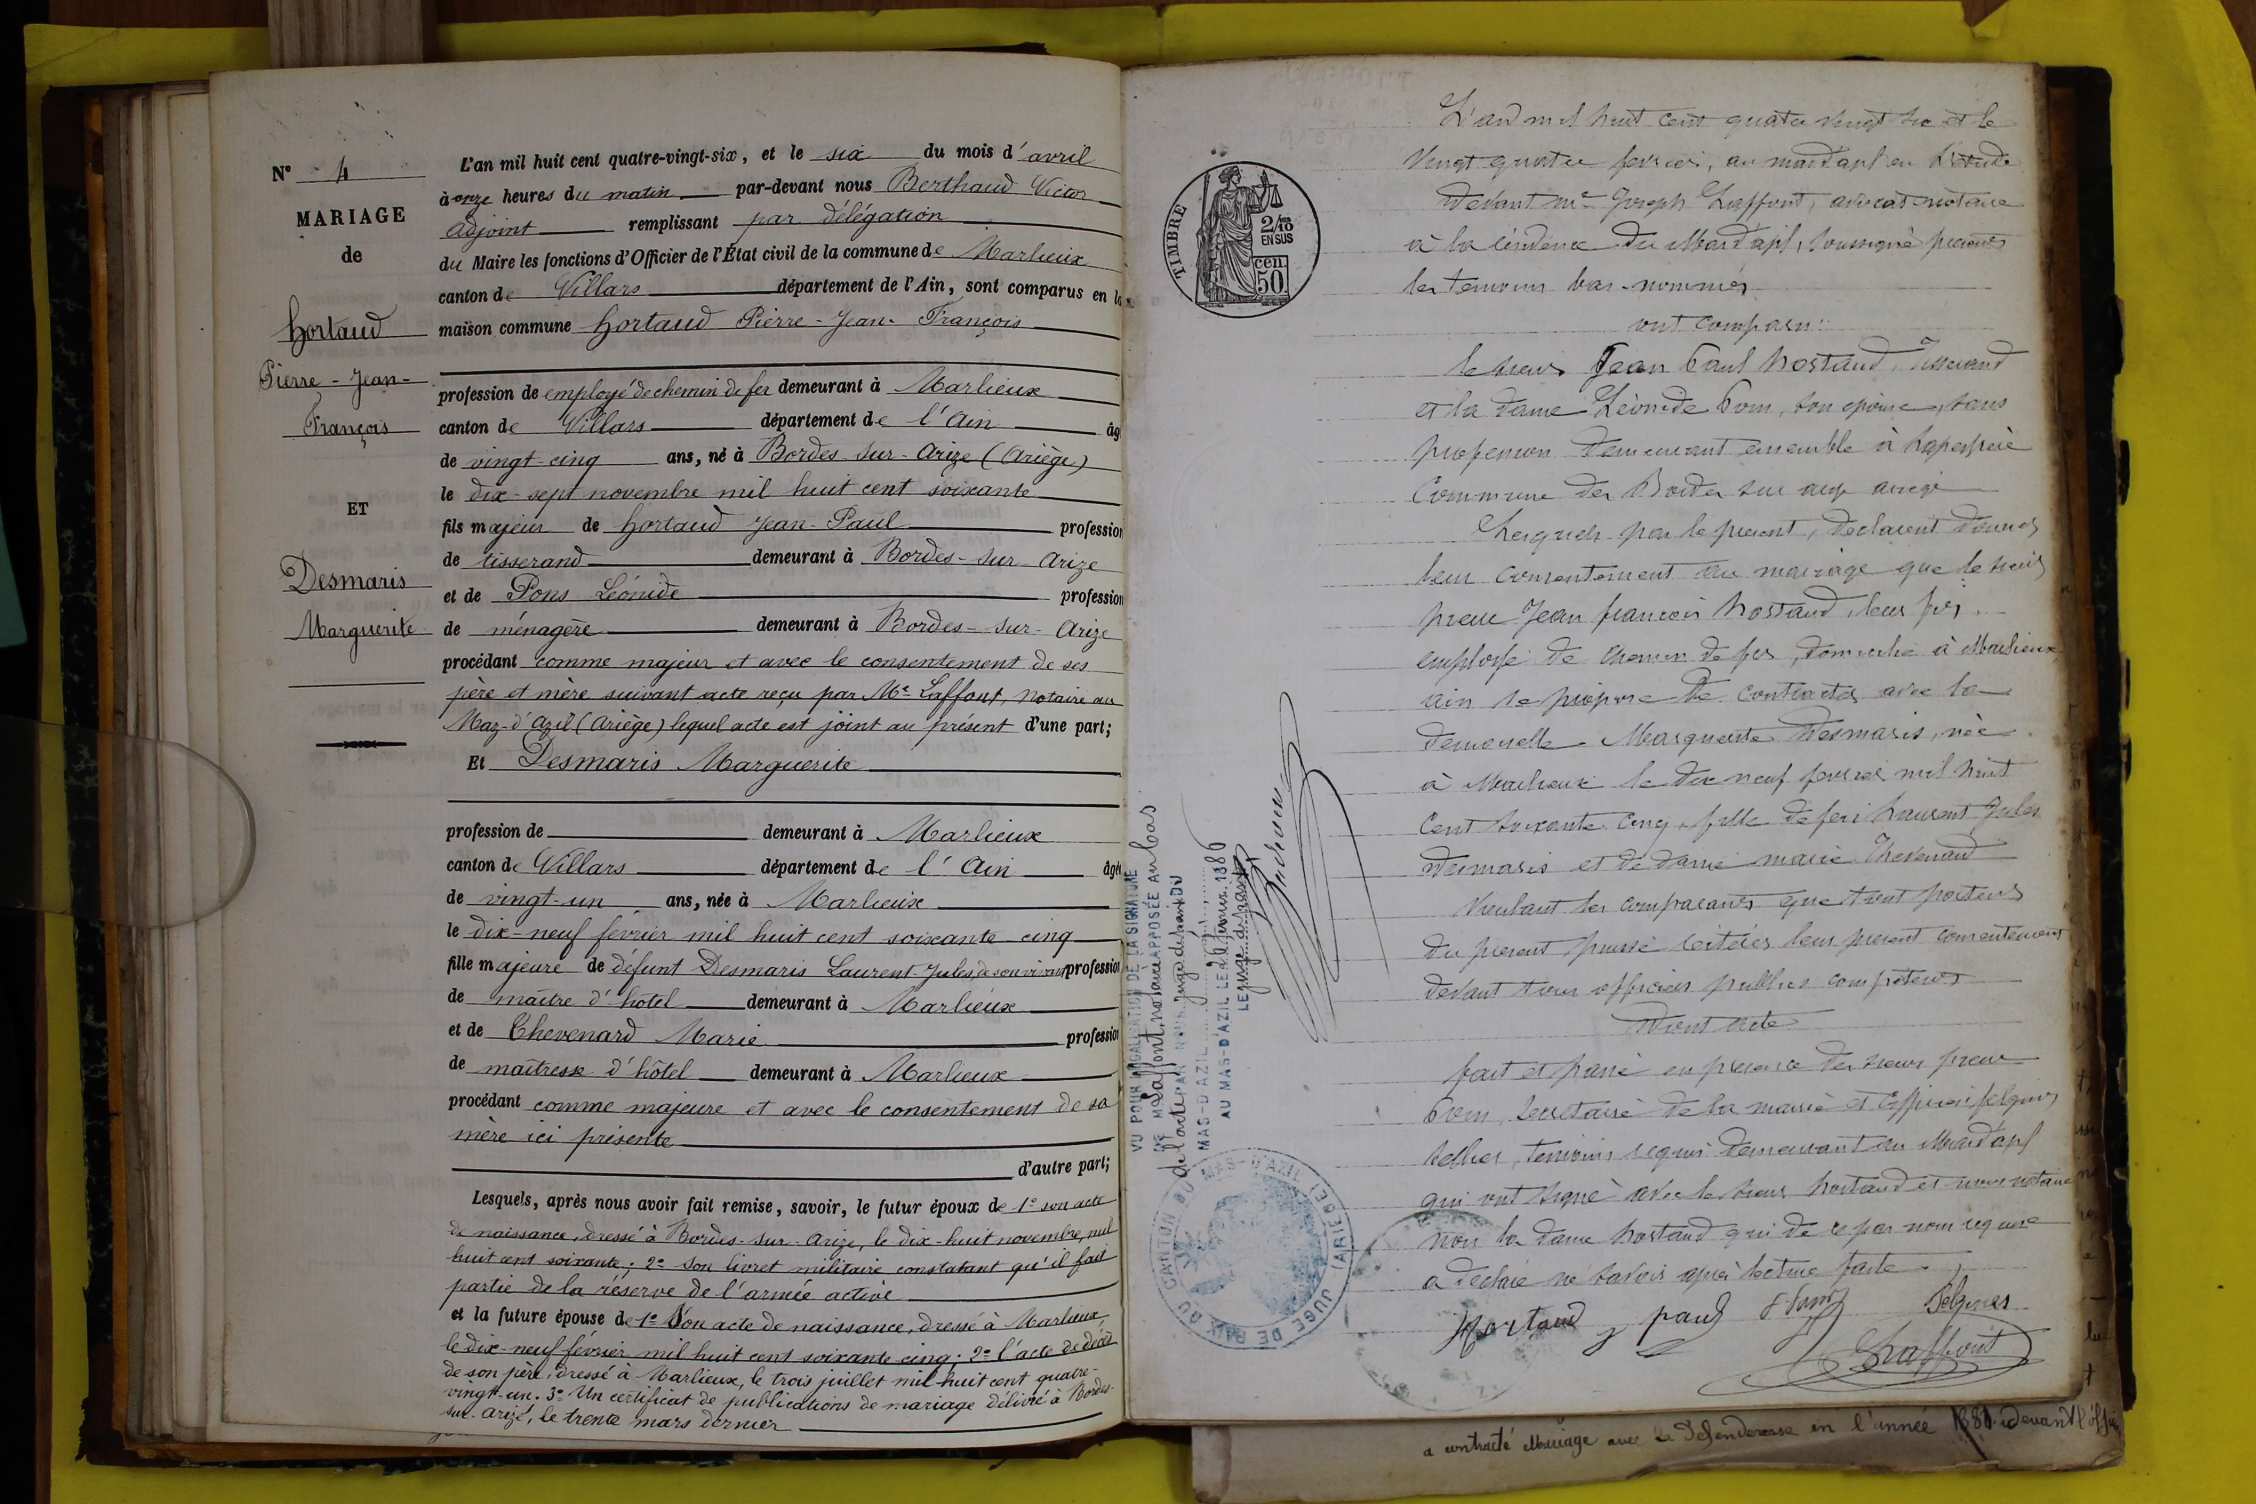 N° 4
MARIAGE
de
Hortaud
Pierre - Jean -
François
ET
Desmaris
Marguerite
L'an mil huit cent quatre-vingt-six, et le six du mois d'avril
à onze heures du matin par-devant nous Berthaud Victor
adjoint remplissant par délégation
du Maire les fonctions d'Officier de l'État civil de la commune de Marlieux
canton de Villars département de l'Ain, sont comparus en la
maison commune Hortaud Pierre - Jean - François
profession de employé de chemin de fer demeurant à Marlieux
canton de Villars département de l'Ain âg
de vingt-cinq ans, né à Bordes-sur-Arize (Ariège)
le dix-sept novembre mil huit cent soixante
fils majeur de Hortaud Jean-Paul profession
de tisserand demeurant à Bordes-sur-Arize
et de Pons Léonide profession
de ménagère demeurant à Bordes-sur-Arize
procédant comme majeur et avec le consentement de ses
père et mère suivant acte reçu par Me Laffont, notaire au
Maz-d'Azil (Ariège) lequel acte est joint au présent d'une part;
Et Desmaris Marguerite
profession de demeurant à Marlieux
canton de Villars département de l'Ain âgé
de vingt-un ans, née à Marlieux
le dix-neuf février mil huit cent soixante-cinq
fille majeure de défunt Desmaris Laurent-Jules de son vivant profession
de maître d'hôtel demeurant à Marlieux
et de Chevenard Marie profession
de maîtresse d'hôtel demeurant à Marlieux
procédant comme majeure et avec le consentement de sa
mère ici présente
d'autre part;
Lesquels, après nous avoir fait remise, savoir, le futur époux de 1° son acte
de naissance, dressé à Bordes-sur-Arize, le dix-huit novembre, mil
huit cent soixante; 2° son livret militaire constatant qu'il fait
partie de la réserve de l'armée active
et la future épouse de 1° Son acte de naissance, dressé à Marlieux,
le dix-neuf février mil huit cent soixante cinq; 2° l'acte de décès
de son père, dressé à Marlieux, le trois juillet mil huit cent quatre-
vingt-un. 3° Un certificat de publications de mariage délivré à Bordes-
sur-Arize, le trente mars dernier
TIMBRE
2/10
EN SUS
cen.
50
VU POUR LÉGALISATION DE LA SIGNATURE
DE M. Laffont, notaire APPOSÉE AU bas
de l'acte PAR NOUS Juge de paix DU
MAS-D'AZIL
AU MAS-D'AZIL LE 26 février 1886
LE Juge de paix
JUGE DE PAIX DU CANTON DU MAS-D'AZIL (ARIÈGE)
L'an mil huit cent quatre vingt six et le
vingt quatre fevrier, au mas d'azil en l'étude
devant me Joseph Laffont, avocat notaire
à la résidence du Mas d'azil, soussigné présents
les temoins bas-nommés
ont comparu:
le sieur Jean Paul hortaud, Tisserand
et la dame Léonide Pons, son épouse, sans
profession demeurant ensemble à
Commune des Bordes sur arize ariege
Lesquels par le present, déclarent donner
leur consentement au mariage que le sieur
pierre Jean francois hortaud, leur fils,
employé de chemin de fer, domicilié à Marlieux,
ain se propose de contracter avec la
demoiselle Marguerite Desmaris, née
à Marlieux le dix neuf fevrier mil huit
cent soixante cinq, fille de feu Laurent Jules
Desmaris et de dame marie Thevenard
Voulant les comparants que tout porteur
du present puisse réitérer leur present consentement
devant tous officiers publics compétents
Dont acte
fait et passé en presence des sieurs pierre
Pons, Secretaire de la mairie et
sellier, temoins requis demeurant au Mas d'azil
qui ont signé avec le sieur hortaud et nous notaire
non la dame hortaud qui de ce par nous requise
a déclaré ne savoir après lecture faite
Hortaud paul Pons Selgines
Laffont
a contracté Mariage avec la Defenderesse en l'année 1881 devant l'offi